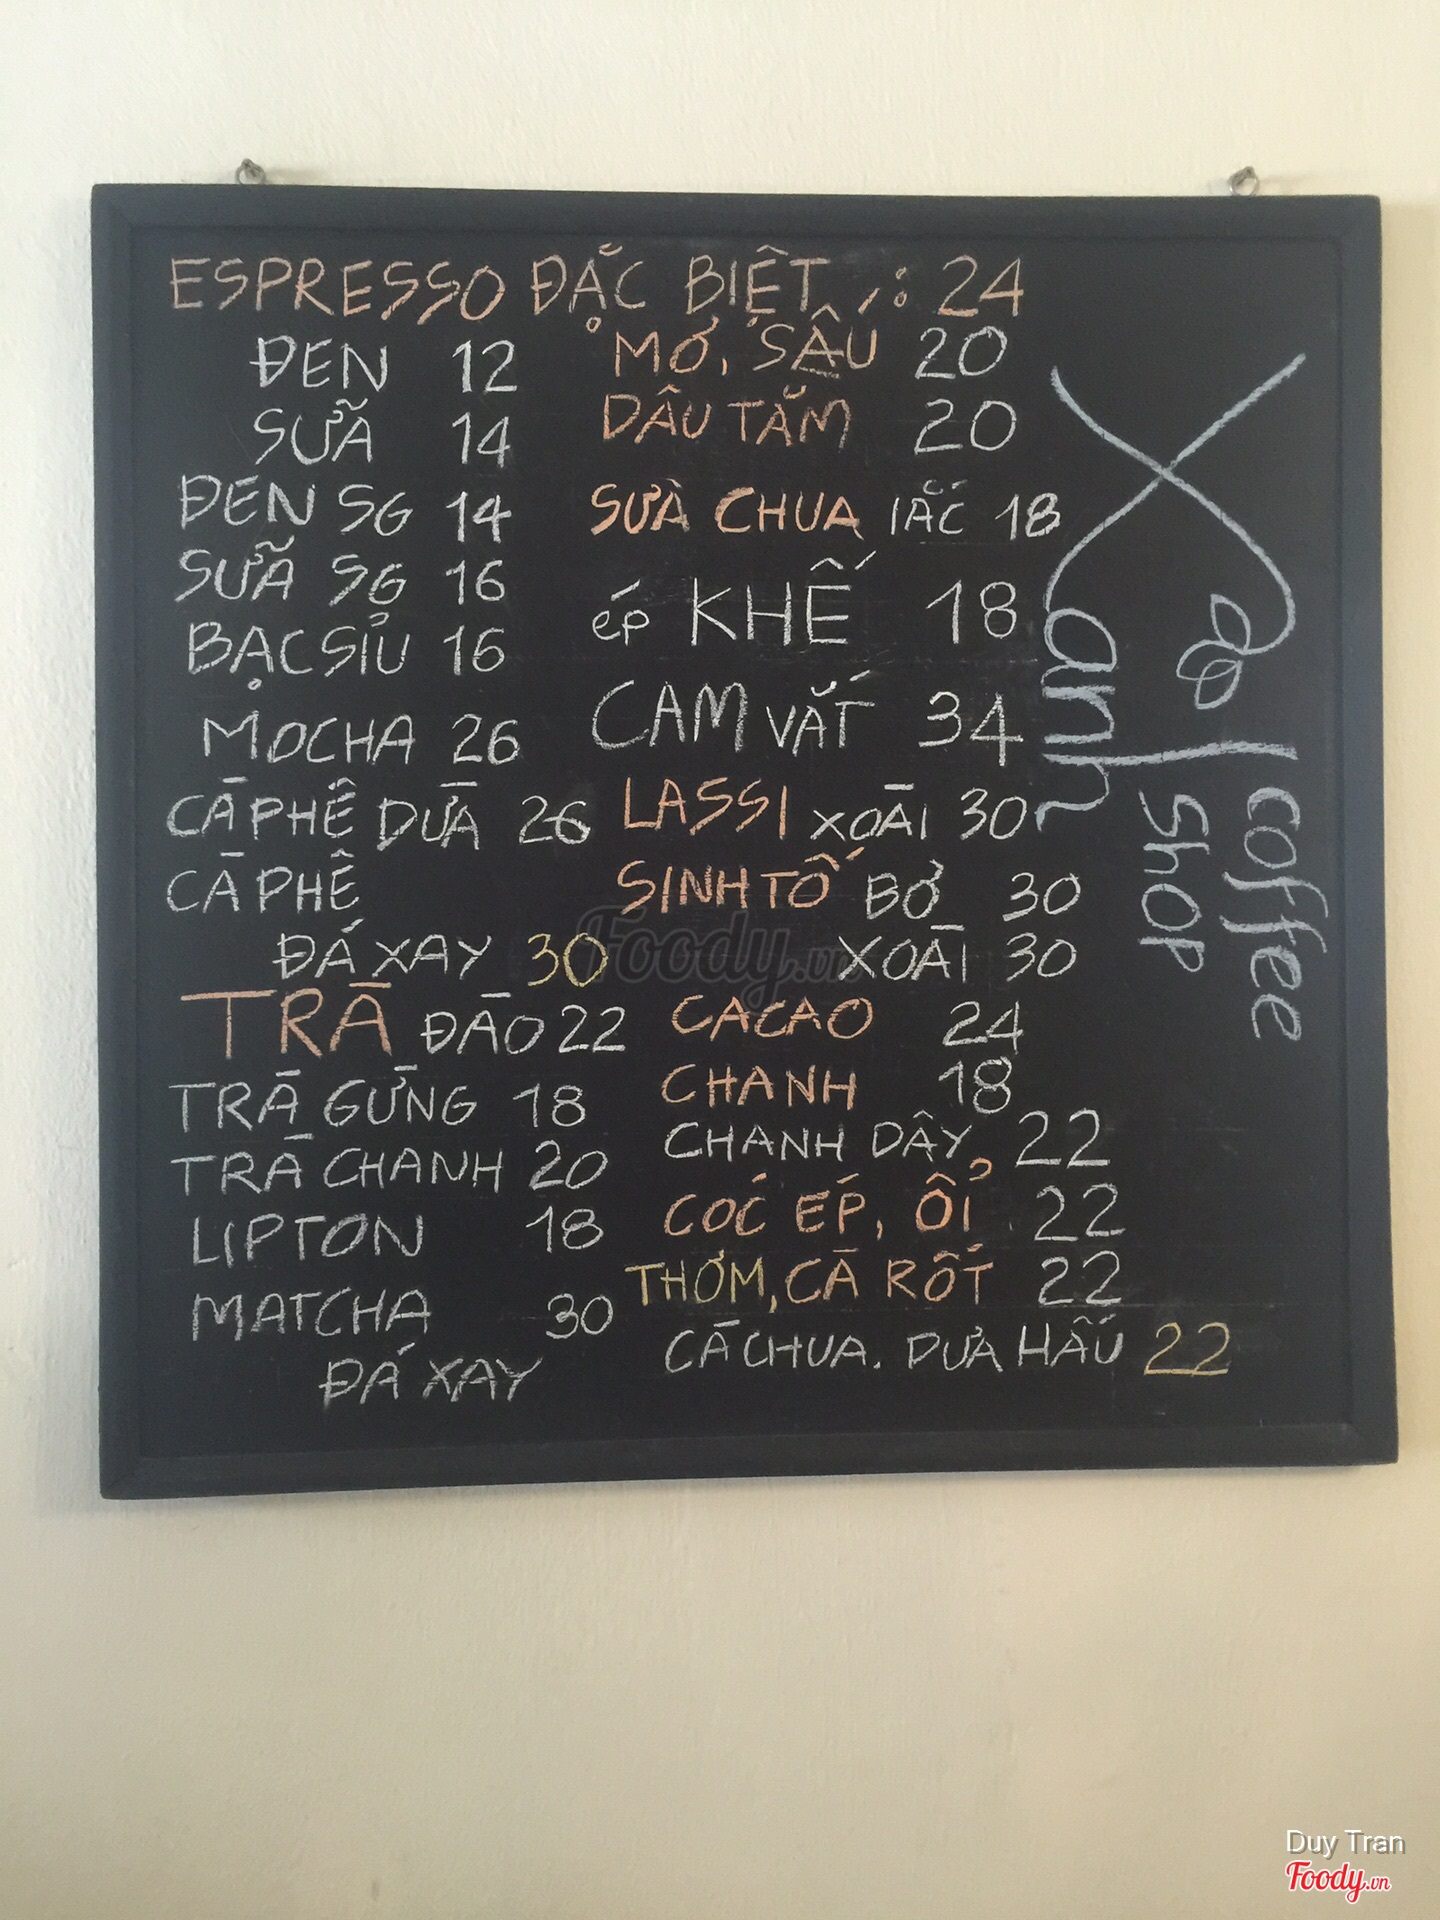 ESPRESSO ĐẶC BIỆT : 24
ĐEN 12
SỮA 14
ĐEN SG 14
SỮA SG 16
BẠC SỈU 16
MOCHA 26
CÀ PHÊ DỪA 26
CÀ PHÊ
ĐÁ XAY 30
TRÀ ĐÀO 22
TRÀ GỪNG 18
TRÀ CHANH 20
LIPTON 18
MATCHA 30
ĐÁ XAY
MƠ, SẤU 20
DÂU TẰM 20
SỮA CHUA lẮC 18
éP KHẾ 18
CAM VẮT 34
LASSI XOÀI 30
SINH TỐ BƠ 30
XOÀI 30
CACAO 24
CHANH 18
CHANH DÂY 22
CÓC ÉP, ỔI 22
THƠM, CÀ RỐT 22
CÀ CHUA. DƯA HẤU 22
Xanh
coffee
Shop
Foody.vn
Duy Tran
Foody.vn